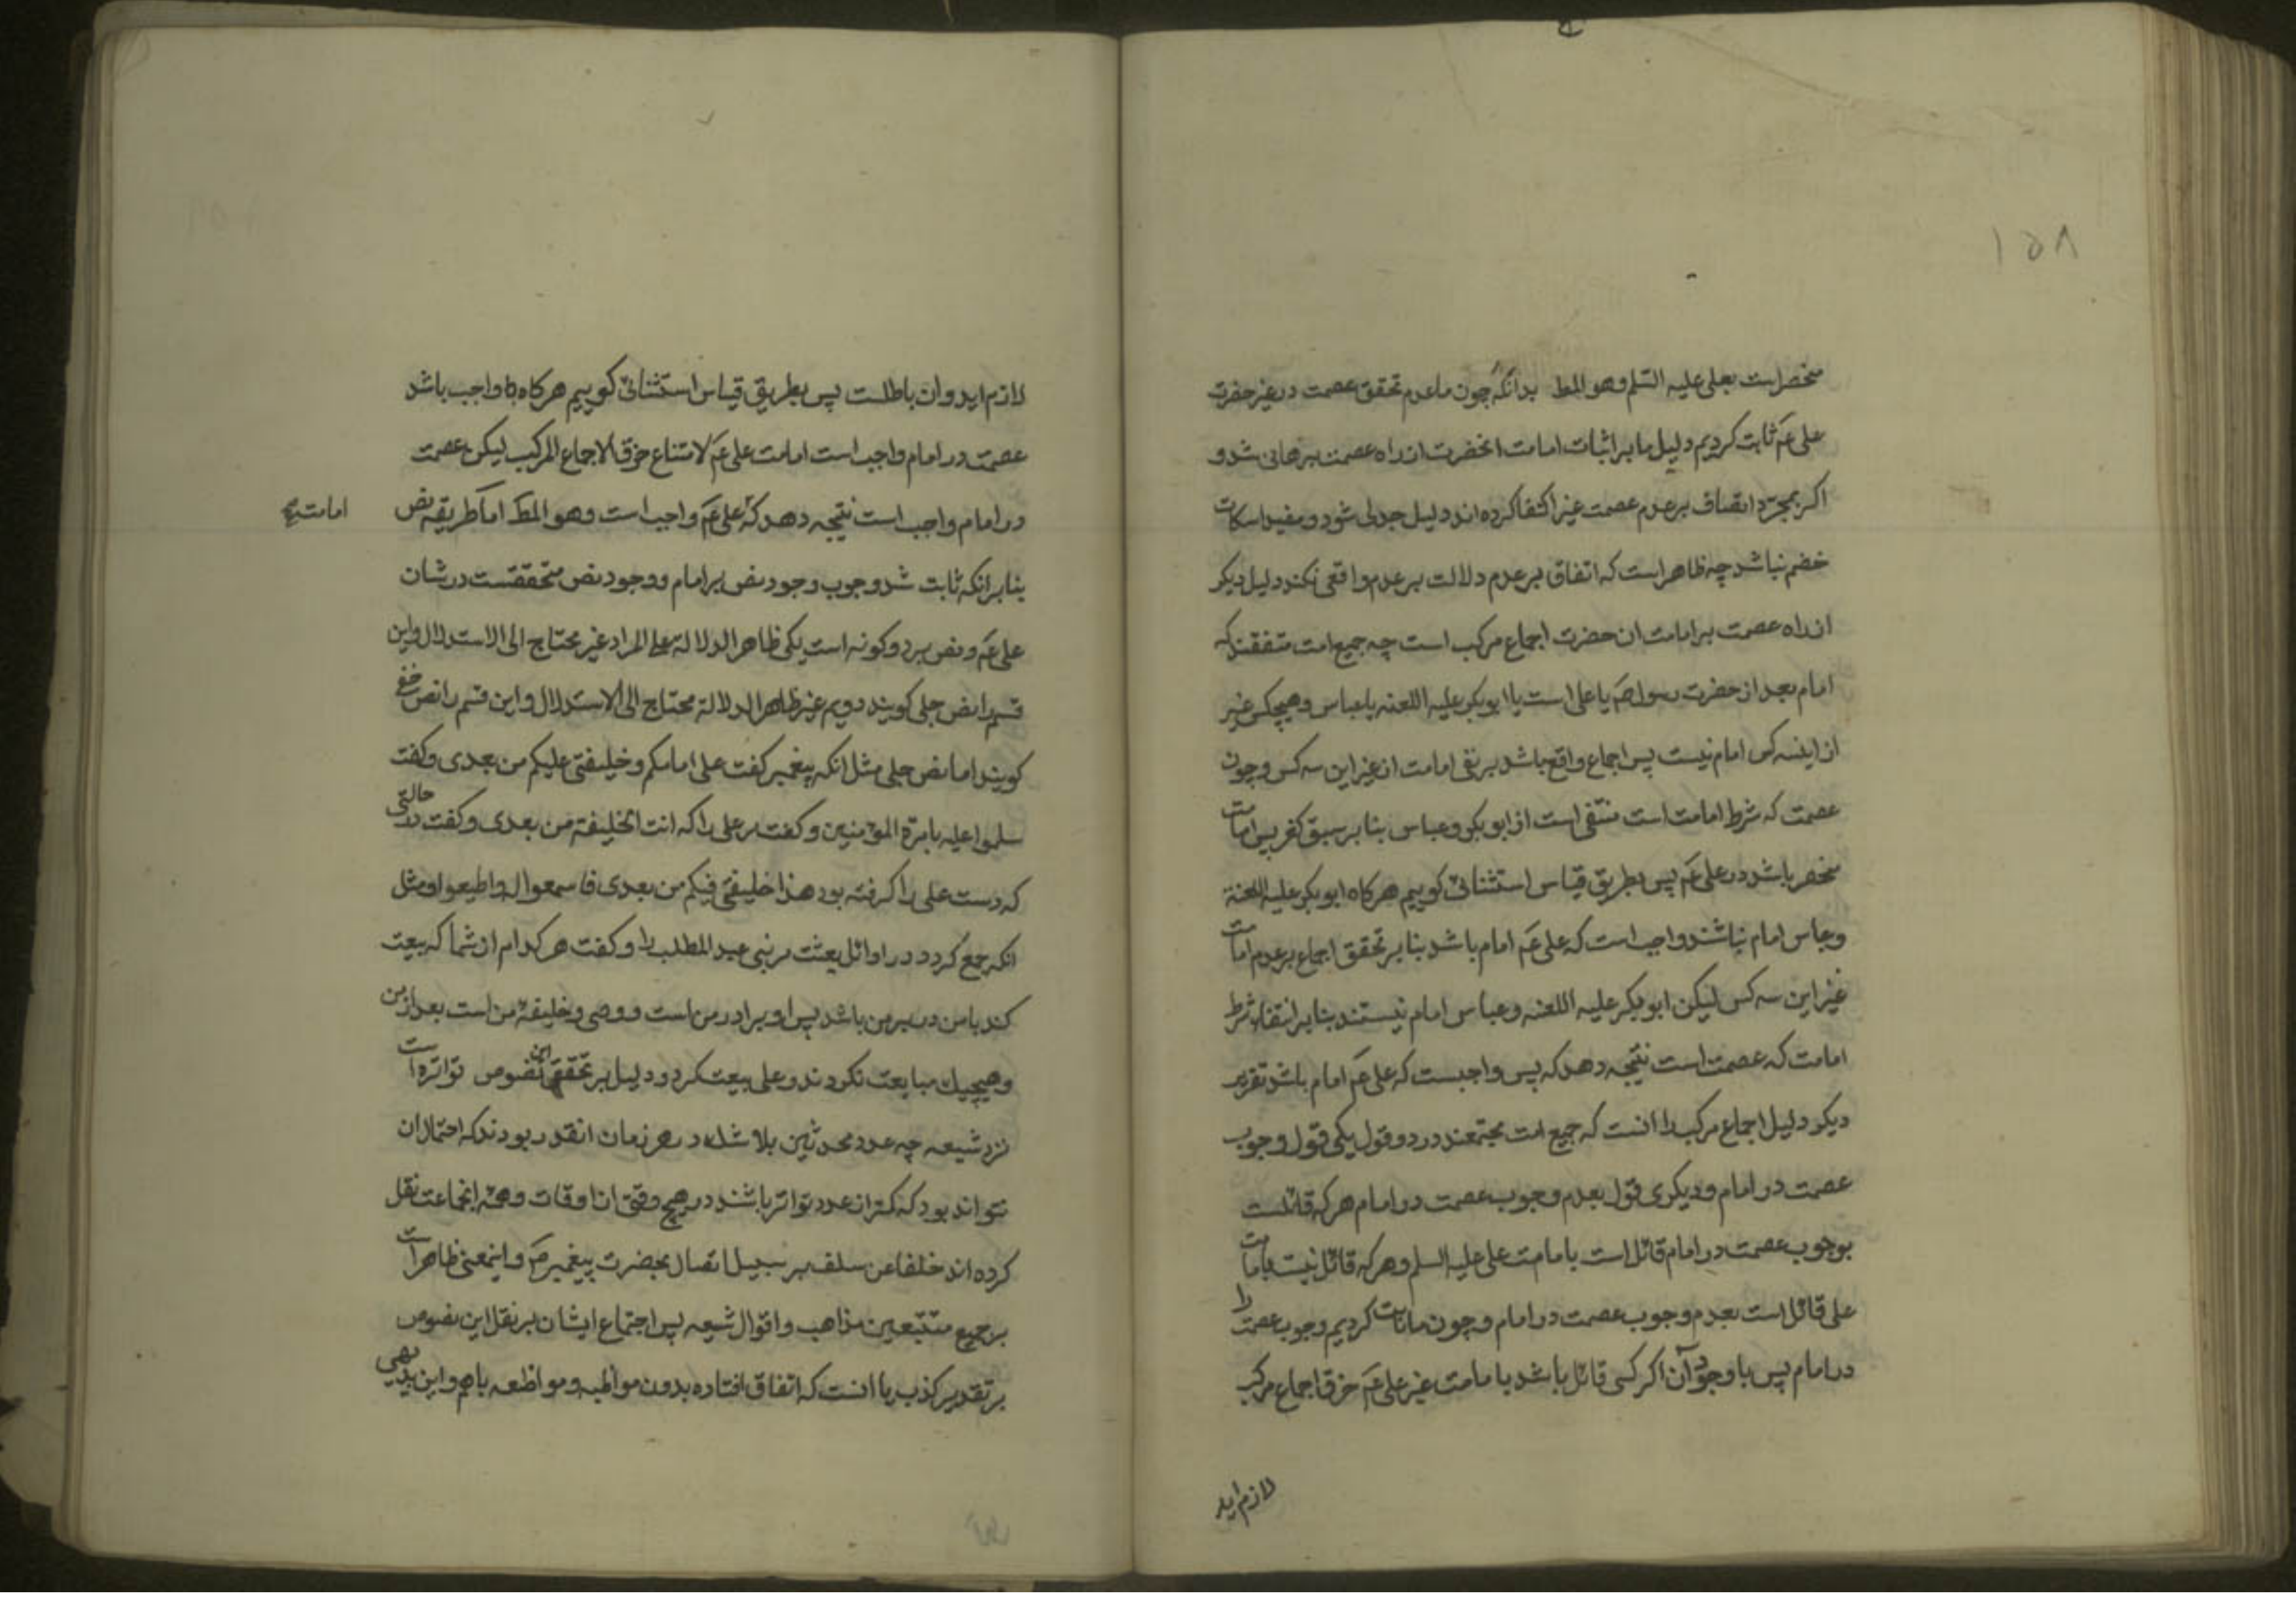 ۱۵۸
منحصر است بعلی علیه السّلم وهو المط بدانکه چون ما عدم تحقق عصمت در غیر حضرت
علی عَم ثابت کردیم دلیل ما بر اثبات امامت انحضرت از راه عصمت برهانی شد و
اکر بمجرّد اتصاف بر عدم عصمت غیر اکتفا کرده اند دلیل جدلی شود و مفید اسکات
خضم نباشد چه ظاهر است که اتفاق بر عدم دلالت بر عدم واقعی نکند دلیل دیکر
از راه عصمت بر امامت ان حضرت اجماع مرکب است چه جمیع امت متفقند که
امام بعد از حضرت رسول صَم یا علی است یا ابو بکر علیه اللعنه یا عباس وهیچکس غیر
از اینسه کس امام نیست پس اجماع واقع باشد بر نفی امامت از غیر این سه کس و چون
عصمت که شرط امامت است منتفی است از ابو بکر و عباس بنا بر سبق کفر پس امامت
منحصر باشد در علی عَم پس بطریق قیاس استثنائی کوییم هرکاه ابو بکر علیه اللعنة
و عباس امام نباشند واجب است که علی عَم امام باشد بنا بر تحقق اجماع بر عدم امامت
غیر این سه کس لیکن ابو بکر علیه اللعنه و عباس امام نیستند بنا بر انتفاء شرط
امامت که عصمت است نتیجه دهد که پس واجبست که علی عَم امام باشد تقریر
دیکر دلیل اجماع مرکب را انست که جمیع امت مجتمعند در دو قول یکی قول وجوب
عصمت در امام و دیکری قول بعدم وجوب عصمت در امام هر که قائلست
بوجوب عصمت در امام قائل است بامامت علی علیه السلم وهر که قائل نیست بامامت
علی قائل است بعدم وجوب عصمت در امام و چون ما ثابت کردیم وجوب عصمت را
در امام پس با وجود آن اکر کسی قائل باشد بامامت غیر علی عَم خرق اجماع مرکب
لازم اید
لازم اید و ان باطلست پس بطریق قیاس استثنائی کوییم هرکاه واجب باشد
عصمت در امام واجب است امامت علی عَم لامتناع خرق الاجماع المرکب لیکن عصمت
در امام واجب است نتیجه دهد که علی عَم واجب است وهو المط اما طریقه نص
امامت صح
بنا بر انکه ثابت شد وجوب وجود نص بر امام و وجود نص متحققست در شان
علی عَم و نص بر دو کونه است یکی ظاهر الدلالة علی المراد غیر محتاج الی الاستدلال و این
قسم را نص جلی کویند دویم غیر ظاهر الدلالة محتاج الی الاستدلال و این قسم را نص خفی
کویند اما نص جلی مثل انکه پیغمبر کفت علی امامکم و خلیفتی علیکم من بعدی و کفت
سلموا علیه بامرة المؤمنین و کفت مر علی را که انت الخلیفة من بعدی و کفت در حالتی
که دست علی را کرفته بود هذا خلیفتی فیکم من بعدی فاسمعوا له و اطیعوا و مثل
انکه جمع کرد در اوائل بعثت مر بنی عبد المطلب را و کفت هر کدام از شما که بیعت
کند با من در سر من باشد پس او برادر من است و وصی و خلیفهٔ من است بعد از من
وهیچیک مبایعت نکردند و علی بیعت کرد و دلیل بر تحقق این نصوص تواتر است
نزد شیعه چه عدد محدثین بلا شک در هر زمان انقدر بودند که احتمال ان
نتواند بود که کمتر از عدد تواتر باشند در هیچ وقتی از اوقات وهمه انجماعت نقل
کرده اند خلفا عن سلف بر سبیل اتصال بحضرت پیغمبر صَم و اینمعنی ظاهر است
بر جمیع متتبعین مذاهب و اقوال شیعه پس اجتماع ایشان بر نقل این نصوص
بر تقدیر کذب یا انست که اتفاق افتاده بدون مواطبه و مواظعه با هم و این بدیهی